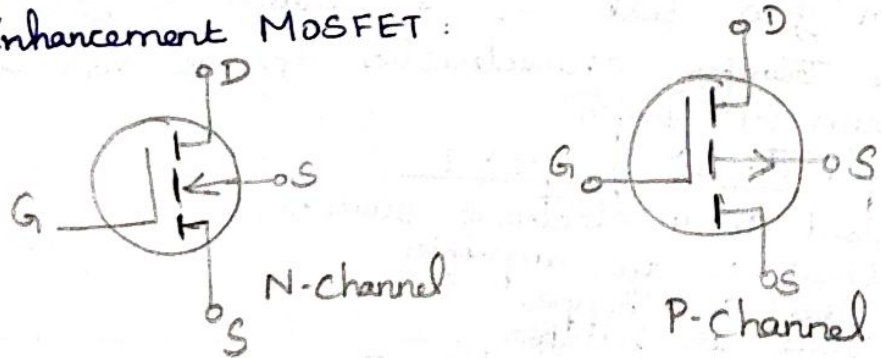 Enhancement MOSFET :
D
D
G
S
G
S
N-Channel
S
S
P-Channel